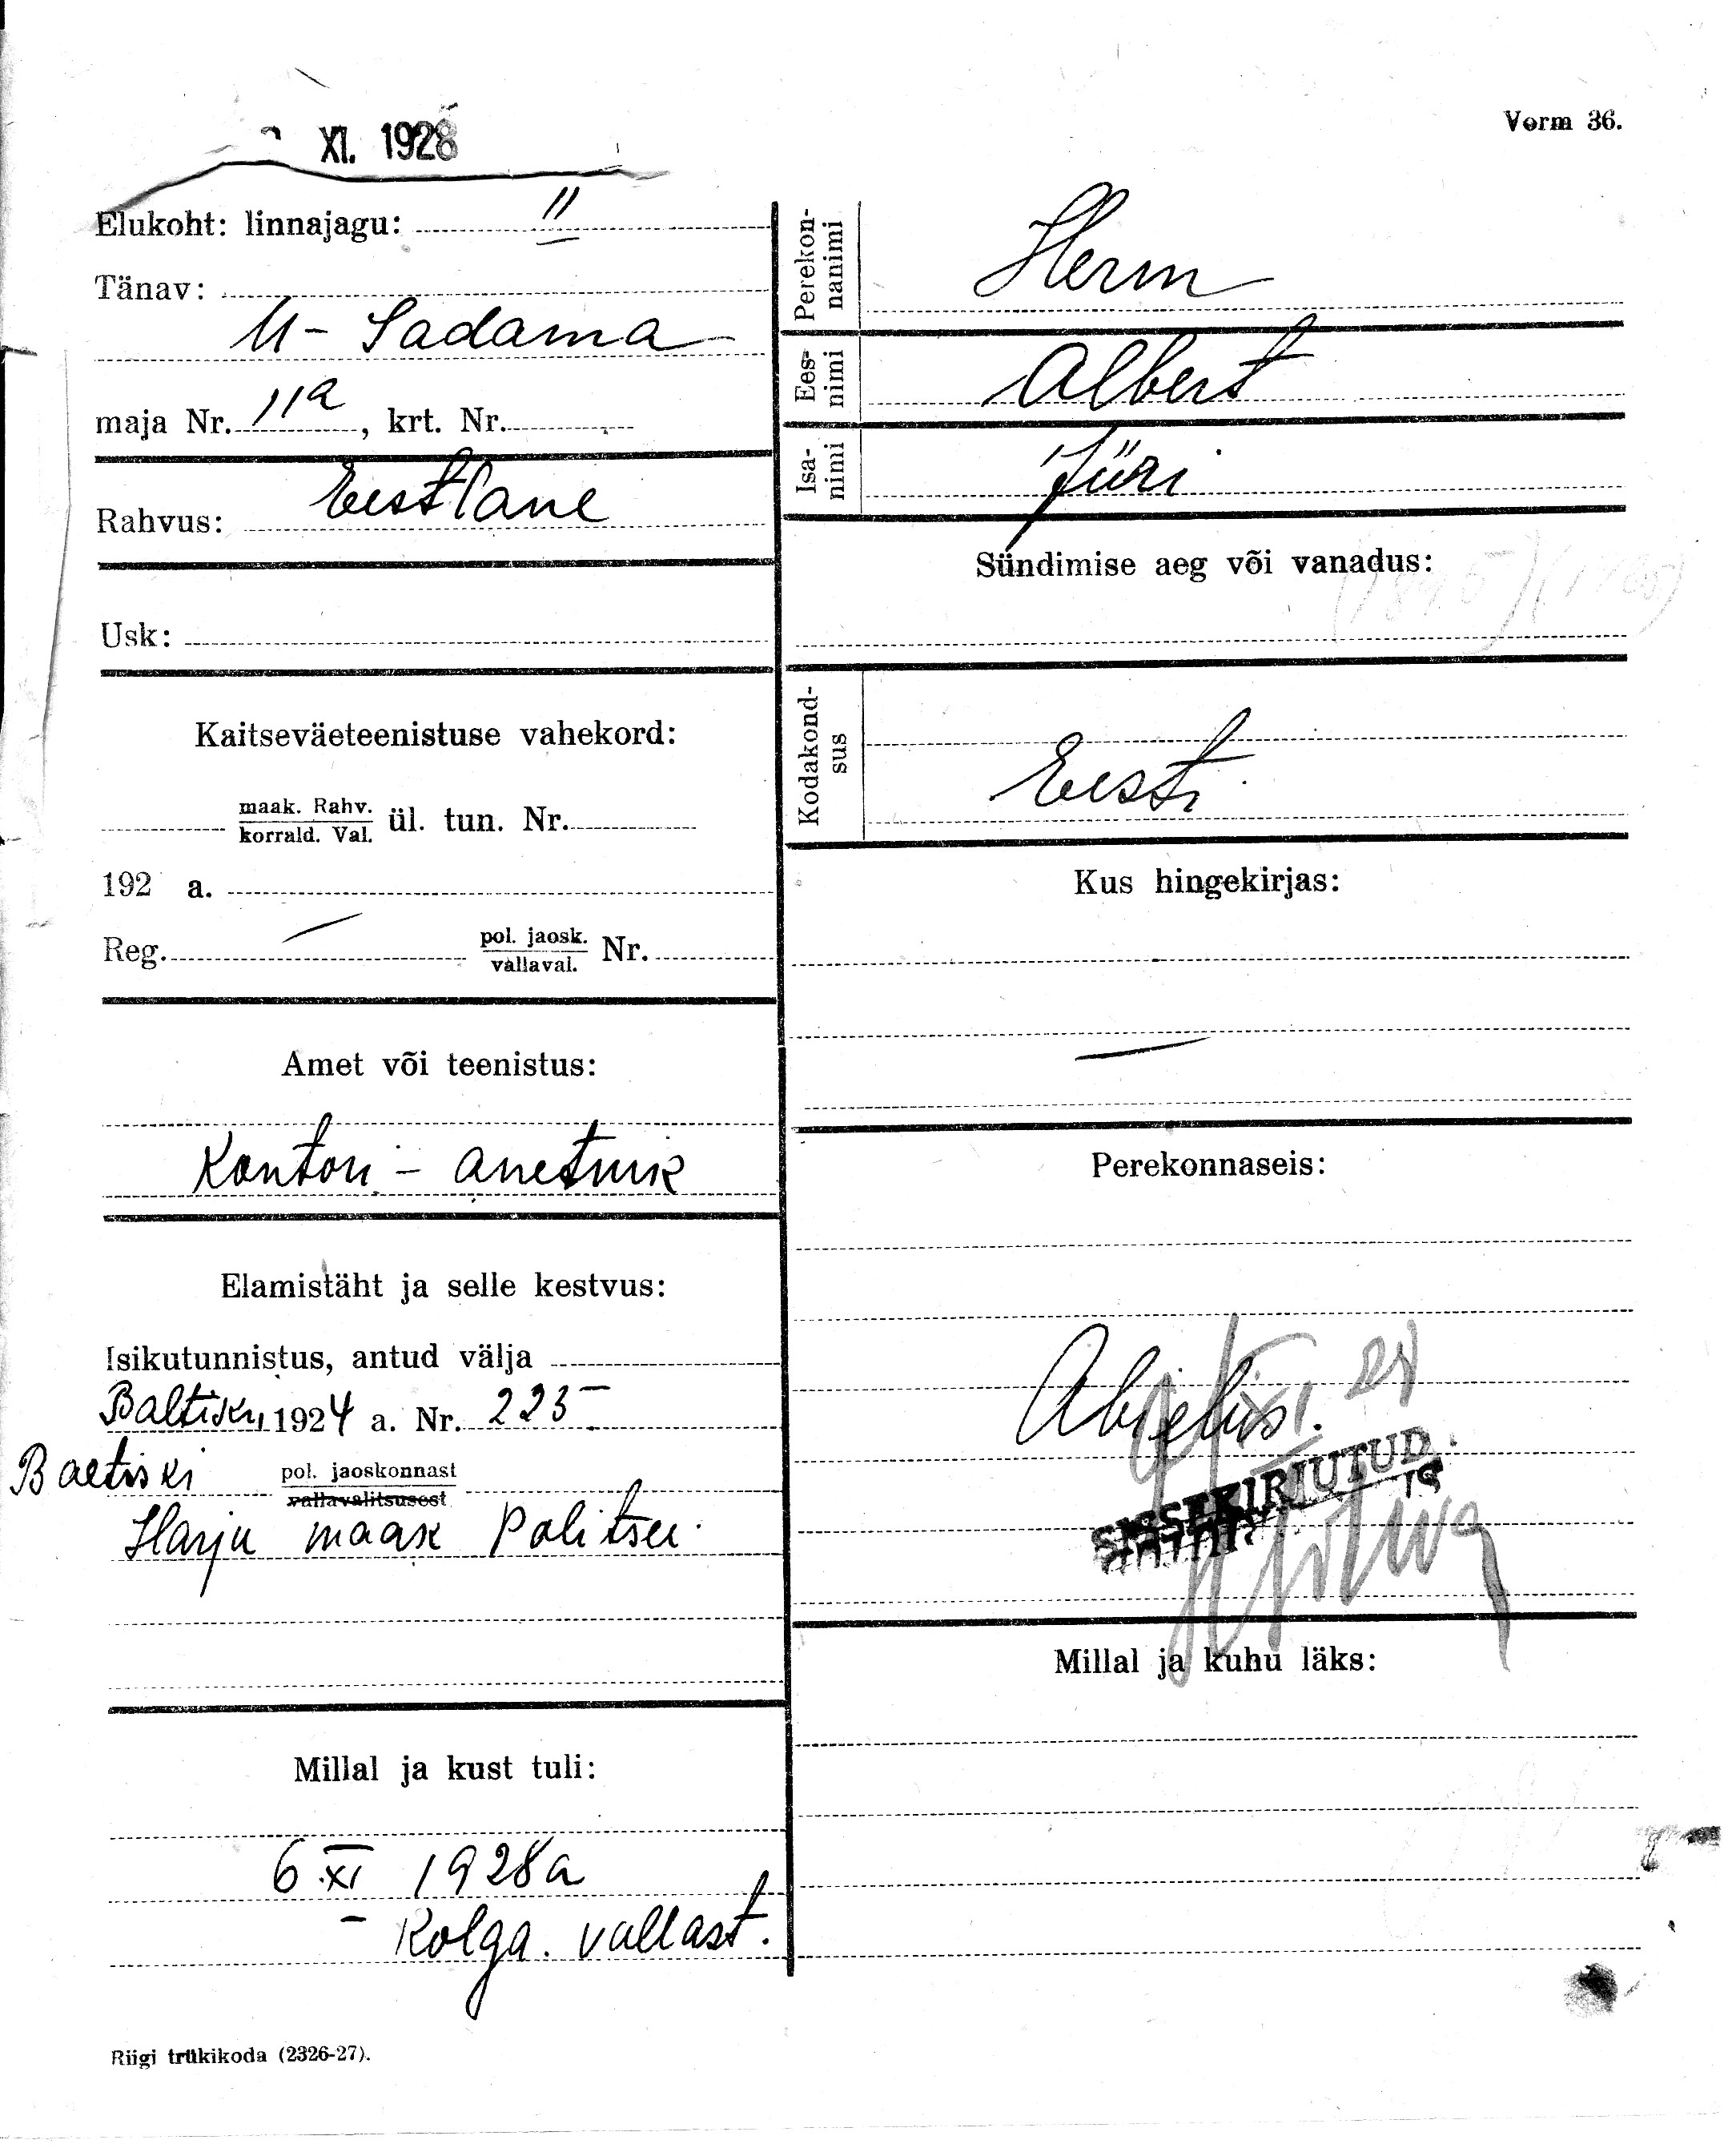 XI. 1928
Vorm 36.
Elukoht: linnajagu: II
Tänav:
U- Sadama
maja Nr. 11a, krt. Nr.
Rahvus: Eestlane
Usk:
Kaitseväeteenistuse vahekord:
maak. Rahv.
korrald. Val. ül. tun. Nr.
192 a.
Reg. — pol. jaosk.
vallaval. Nr.
Amet või teenistus:
Kontori - ametnik
Elamistäht ja selle kestvus:
Isikutunnistus, antud välja
Baltiski, 1924 a. Nr. 225
Baltiski pol. jaoskonnast
vallavalitsusest
Harju maak Politsei.
Millal ja kust tuli:
6. XI 1928a
- Kolga. vallast.
Riigi trükikoda (2326-27).
Perekon-
nanimi Herm
Ees-
nimi Albert
Isa-
nimi Jüri
Sündimise aeg või vanadus:
Kodakond-
sus Eesti
Kus hingekirjas:
—
Perekonnaseis:
Abielus.
XI 28
SISSEKIRJUTUD
19
Millal ja kuhu läks: